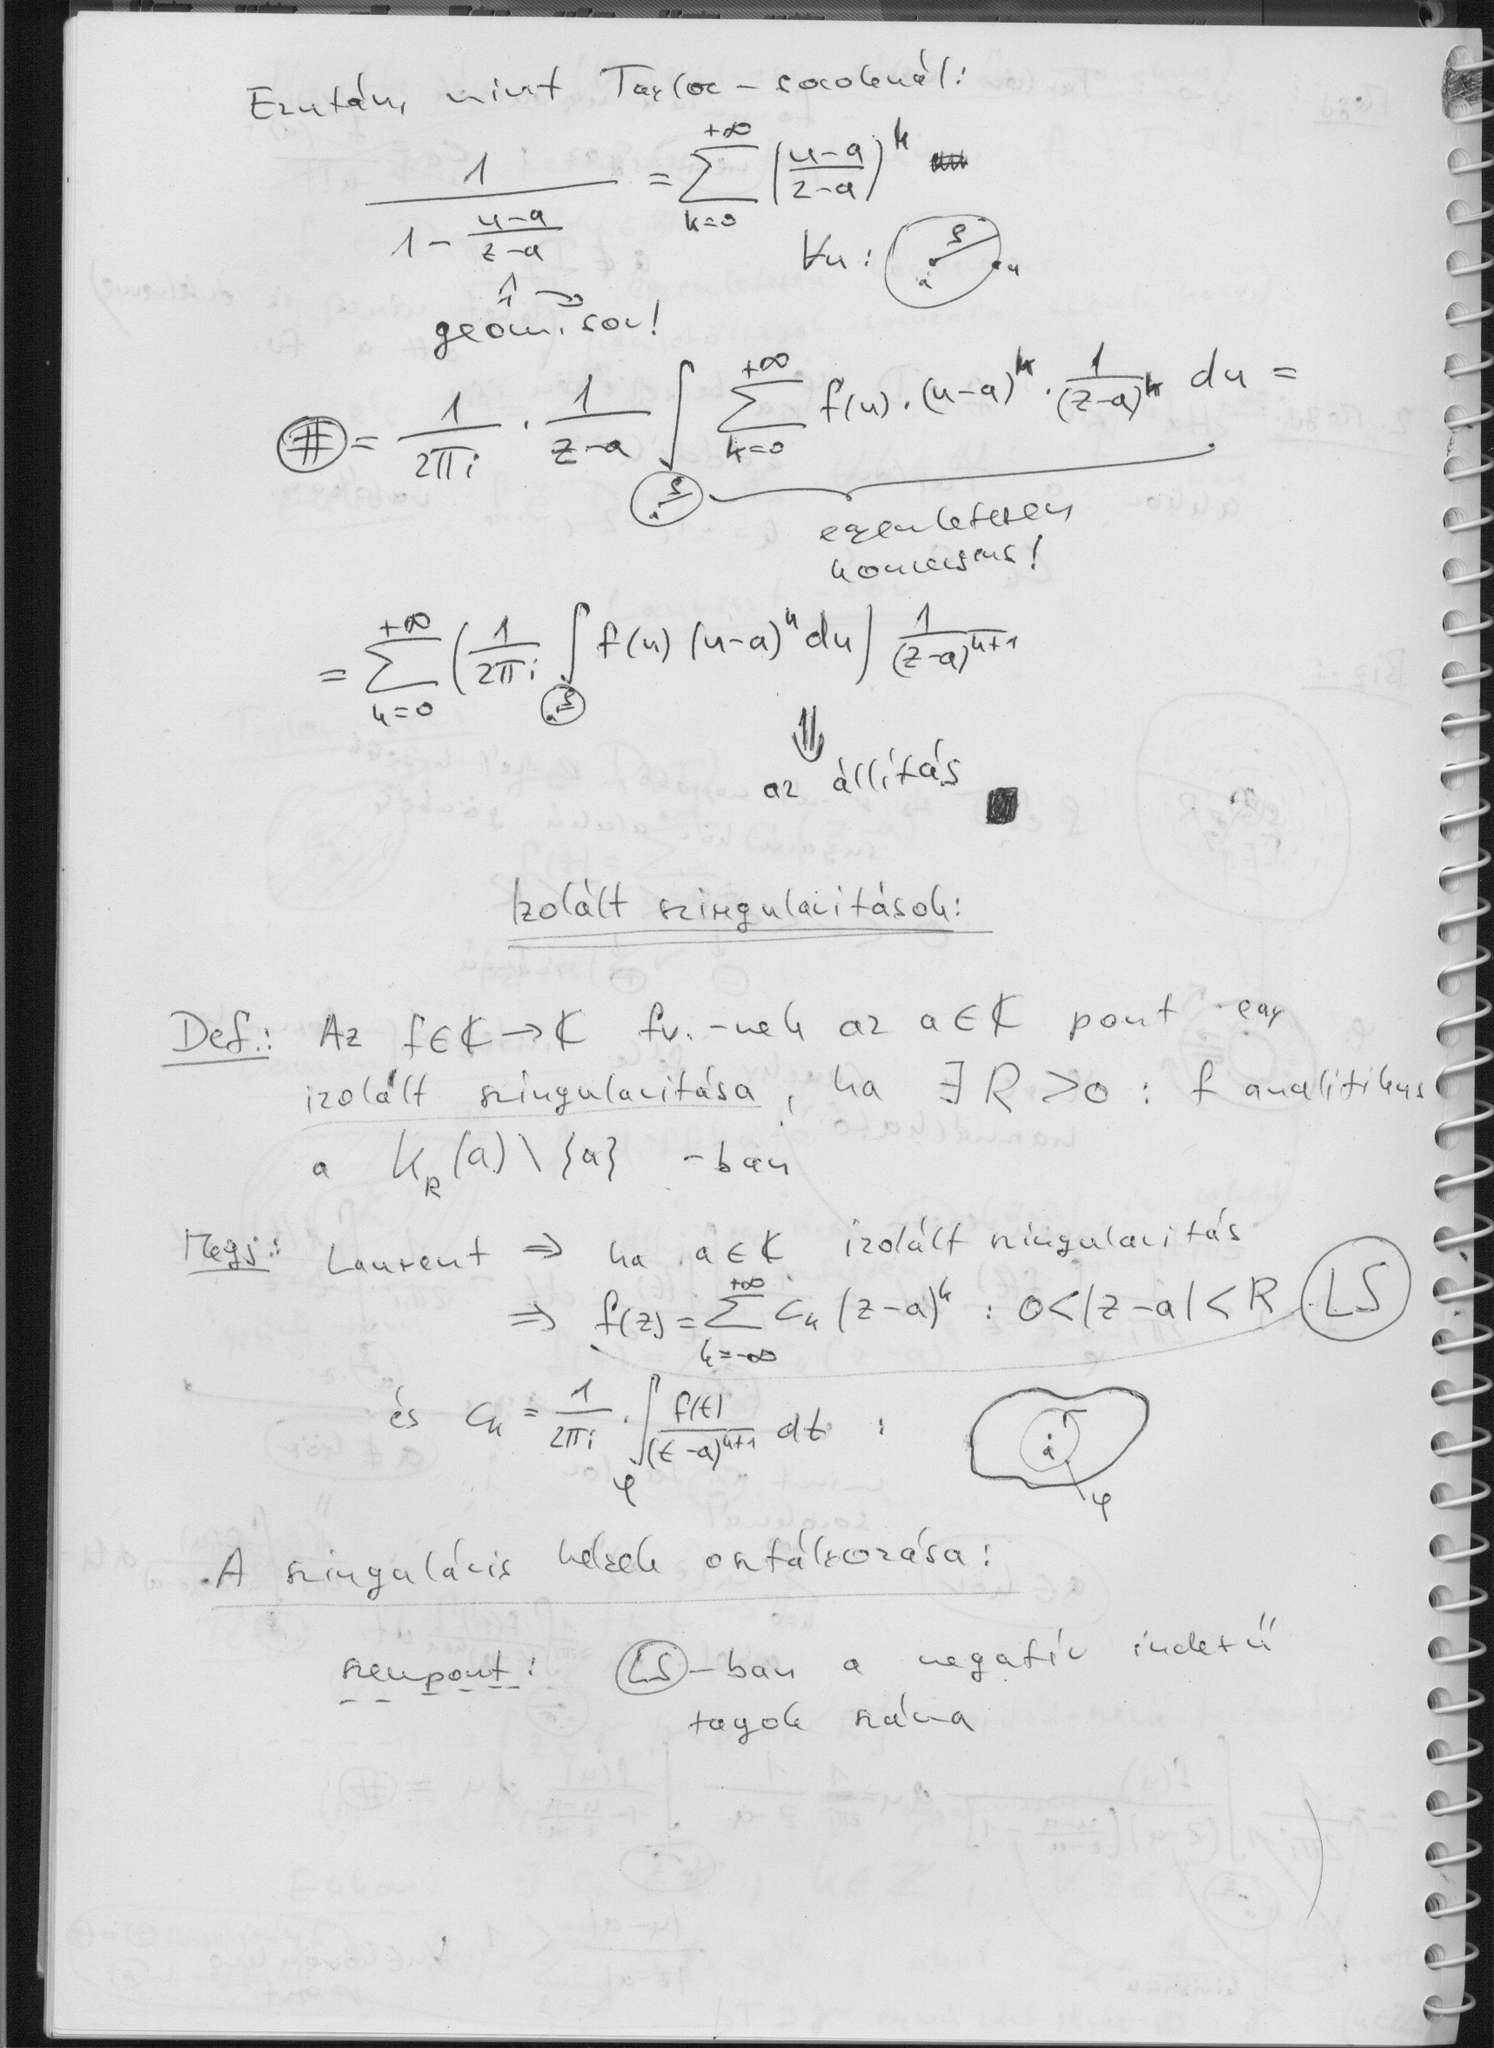 Ezután, mint Taylor-soroknál:
1 / (1 - (u-a)/(z-a)) = ∑_{k=0}^{+∞} ((u-a)/(z-a))^k
∀u: ρ a u
geom. sor!
(#) = 1/(2πi) · 1/(z-a) ∫ ∑_{k=0}^{+∞} f(u)·(u-a)^k · 1/(z-a)^k du =
ρ a
egyenletesen
konvergens!
= ∑_{k=0}^{+∞} (1/(2πi) ∫ f(u) (u-a)^k du) 1/(z-a)^{k+1}
ρ a
⇓
az állítás ■
Izolált szingularitások:
Def.: Az f∈ℂ→ℂ fv.-nek az a∈ℂ pont egy
izolált szingularitása, ha ∃R>0: f analitikus
a K_R(a)\{a} -ban
Megj.: Laurent ⇒ ha a∈ℂ izolált szingularitás
⇒ f(z) = ∑_{k=-∞}^{+∞} c_k (z-a)^k : 0<|z-a|<R (LS)
és c_k = 1/(2πi) · ∫_φ f(t)/(t-a)^{k+1} dt : a φ
A szinguláris helyek osztályozása:
szempont: (LS)-ban a negatív indexű
tagok száma